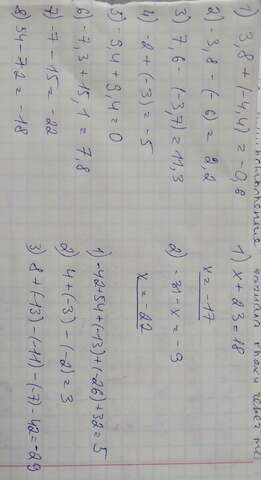 1) 3,8 + (-4,4) = -0,6
2) -3,8 - (-6) = 2,2
3) 7,6 - (-3,7) = 11,3
4) -2 + (-3) = -5
5) -9,4 + 9,4 = 0
6) -7,3 + 15,1 = 7,8
7) -7 - 15 = -22
8) 54 - 72 = -18
1) x + 23 = 18
x = -17
2) -31 - x = -9
x = -22
1) -42 + 54 + (-13) + (-26) + 32 = 5
2) 4 + (-3) - (-2) = 3
3) 8 + (-13) - (-11) - (-7) - 42 = -29